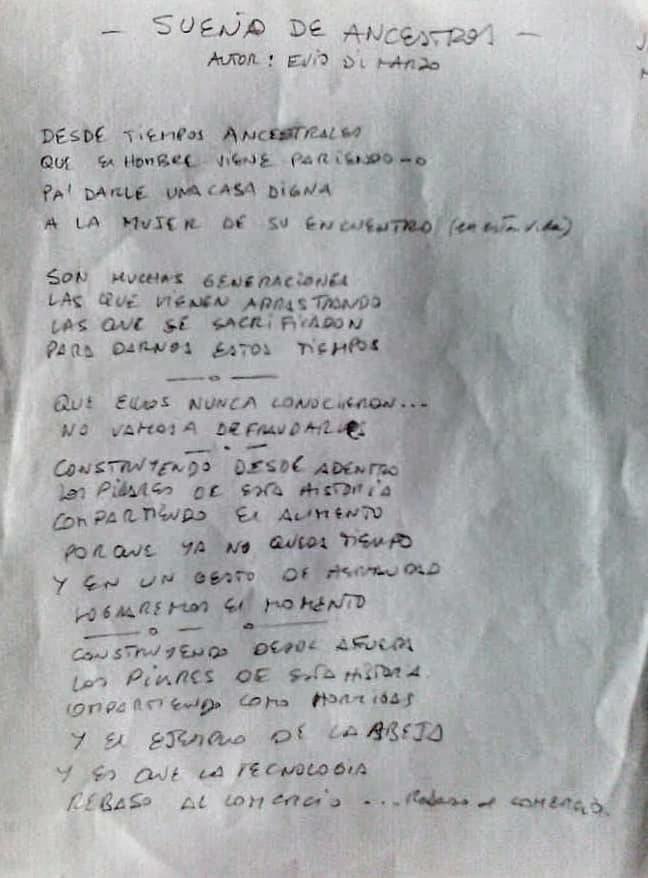 - SUEÑO DE ANCESTROS -
AUTOR: EVIO DI MARZO
DESDE TIEMPOS ANCESTRALES
QUE EL HOMBRE VIENE PARIENDO
PA' DARLE UNA CASA DIGNA
A LA MUJER DE SU ENCUENTRO (en esta vida)
SON MUCHAS GENERACIONES
LAS QUE VIENEN ARRASTRANDO
LAS QUE SE SACRIFICARON
PARA DARNOS ESTOS TIEMPOS
QUE ELLOS NUNCA CONOCIERON...
NO VAMOS A DEFRAUDARLES
CONSTRUYENDO DESDE ADENTRO
LOS PILARES DE ESTA HISTORIA
COMPARTIENDO EL ALIMENTO
PORQUE YA NO QUEDA TIEMPO
Y EN UN GESTO DE HERMANDAD
LOGRAREMOS EL MOMENTO
CONSTRUYENDO DESDE AFUERA
LOS PILARES DE ESTA HISTORIA.
COMPARTIENDO COMO HORMIGAS
Y EL EJEMPLO DE LA ABEJA
Y ES QUE LA TECNOLOGIA
REBASO AL COMERCIO ... Rebaso al COMERCIO.